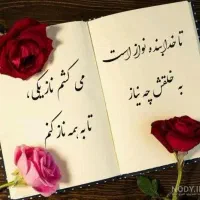 تا خدا بنده نواز است
به خلقش چه نیاز
می کشم ناز یکی،
تا به همه ناز کنم
NODY.IR